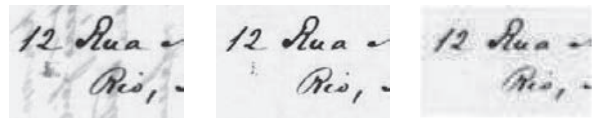 12 Rua
Rio,
12 Rua
Rio,
12 Rua
Rio,